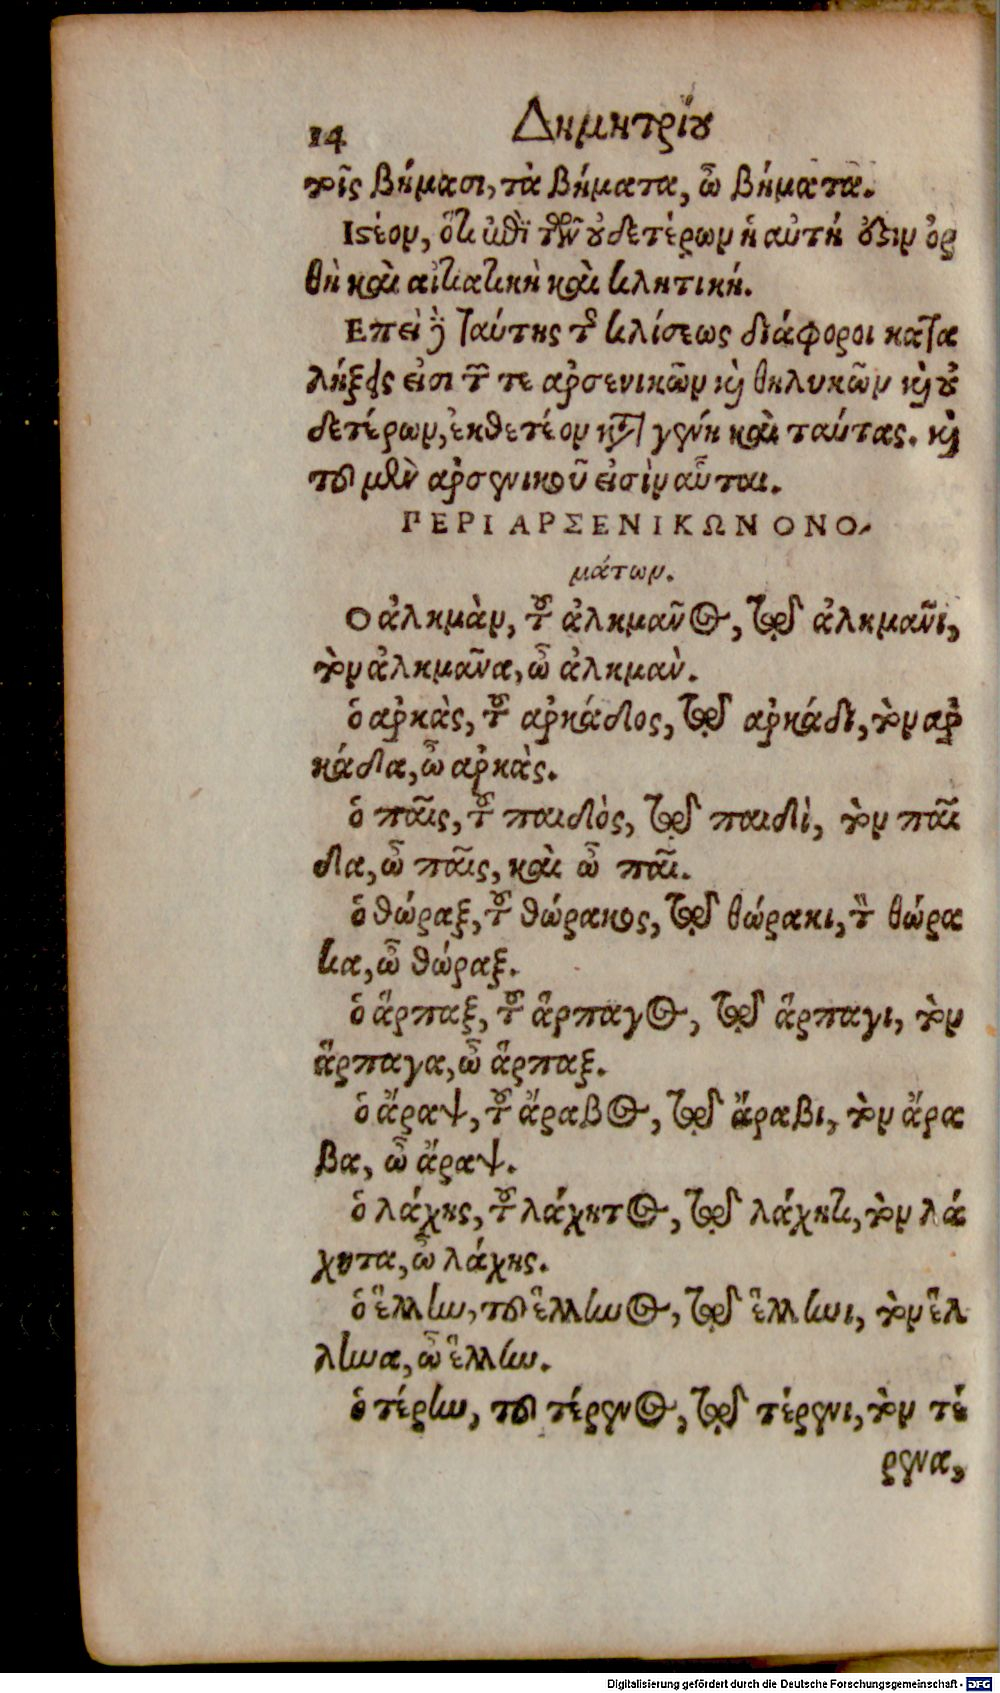 14 Δημητρίου
τοῖς βήμασι, τὰ βήματα, ὦ βήματα.
Ιστέον, ὅτι ἐπὶ τῶν οὐδετέρων ἡ αὐτή ἐστιν ὀρ
θὴ καὶ αἰτιατικὴ καὶ κλητική.
Επεὶ δὲ ταύτης τῆς κλίσεως διάφοροι κατα
λήξεις εἰσι τῶν τε ἀρσενικῶν καὶ θηλυκῶν καὶ οὐ
δετέρων, ἐκθετέον κατὰ γένη καὶ ταύτας. καὶ
τοῦ μὲν ἀρσενικοῦ εἰσὶν αὗται.
ΠΕΡΙ ΑΡΣΕΝΙΚΩΝ ΟΝΟ-
μάτων.
Ο ἀλκμὰν, τοῦ ἀλκμᾶνος, τῷ ἀλκμᾶνι,
τὸν ἀλκμᾶνα, ὦ ἀλκμὰν.
ὁ ἀρκὰς, τοῦ ἀρκάδος, τῷ ἀρκάδι, τὸν ἀρ
κάδα, ὦ ἀρκὰς.
ὁ παῖς, τοῦ παιδὸς, τῷ παιδὶ, τὸν παῖ
δα, ὦ παῖς, καὶ ὦ παῖ.
ὁ θώραξ, τοῦ θώρακος, τῷ θώρακι, τὸν θώρα
κα, ὦ θώραξ.
ὁ ἅρπαξ, τοῦ ἅρπαγος, τῷ ἅρπαγι, τὸν
ἅρπαγα, ὦ ἅρπαξ.
ὁ ἄραψ, τοῦ ἄραβος, τῷ ἄραβι, τὸν ἄρα
βα, ὦ ἄραψ.
ὁ λάχης, τοῦ λάχητος, τῷ λάχητι, τὸν λά
χητα, ὦ λάχης.
ὁ ἕλλην, τοῦ ἕλληνος, τῷ ἕλληνι, τὸν ἕλ
ληνα, ὦ ἕλλην.
ὁ τέρην, τοῦ τέρενος, τῷ τέρενι, τὸν τέ
ρενα,
Digitalisierung gefördert durch die Deutsche Forschungsgemeinschaft - DFG